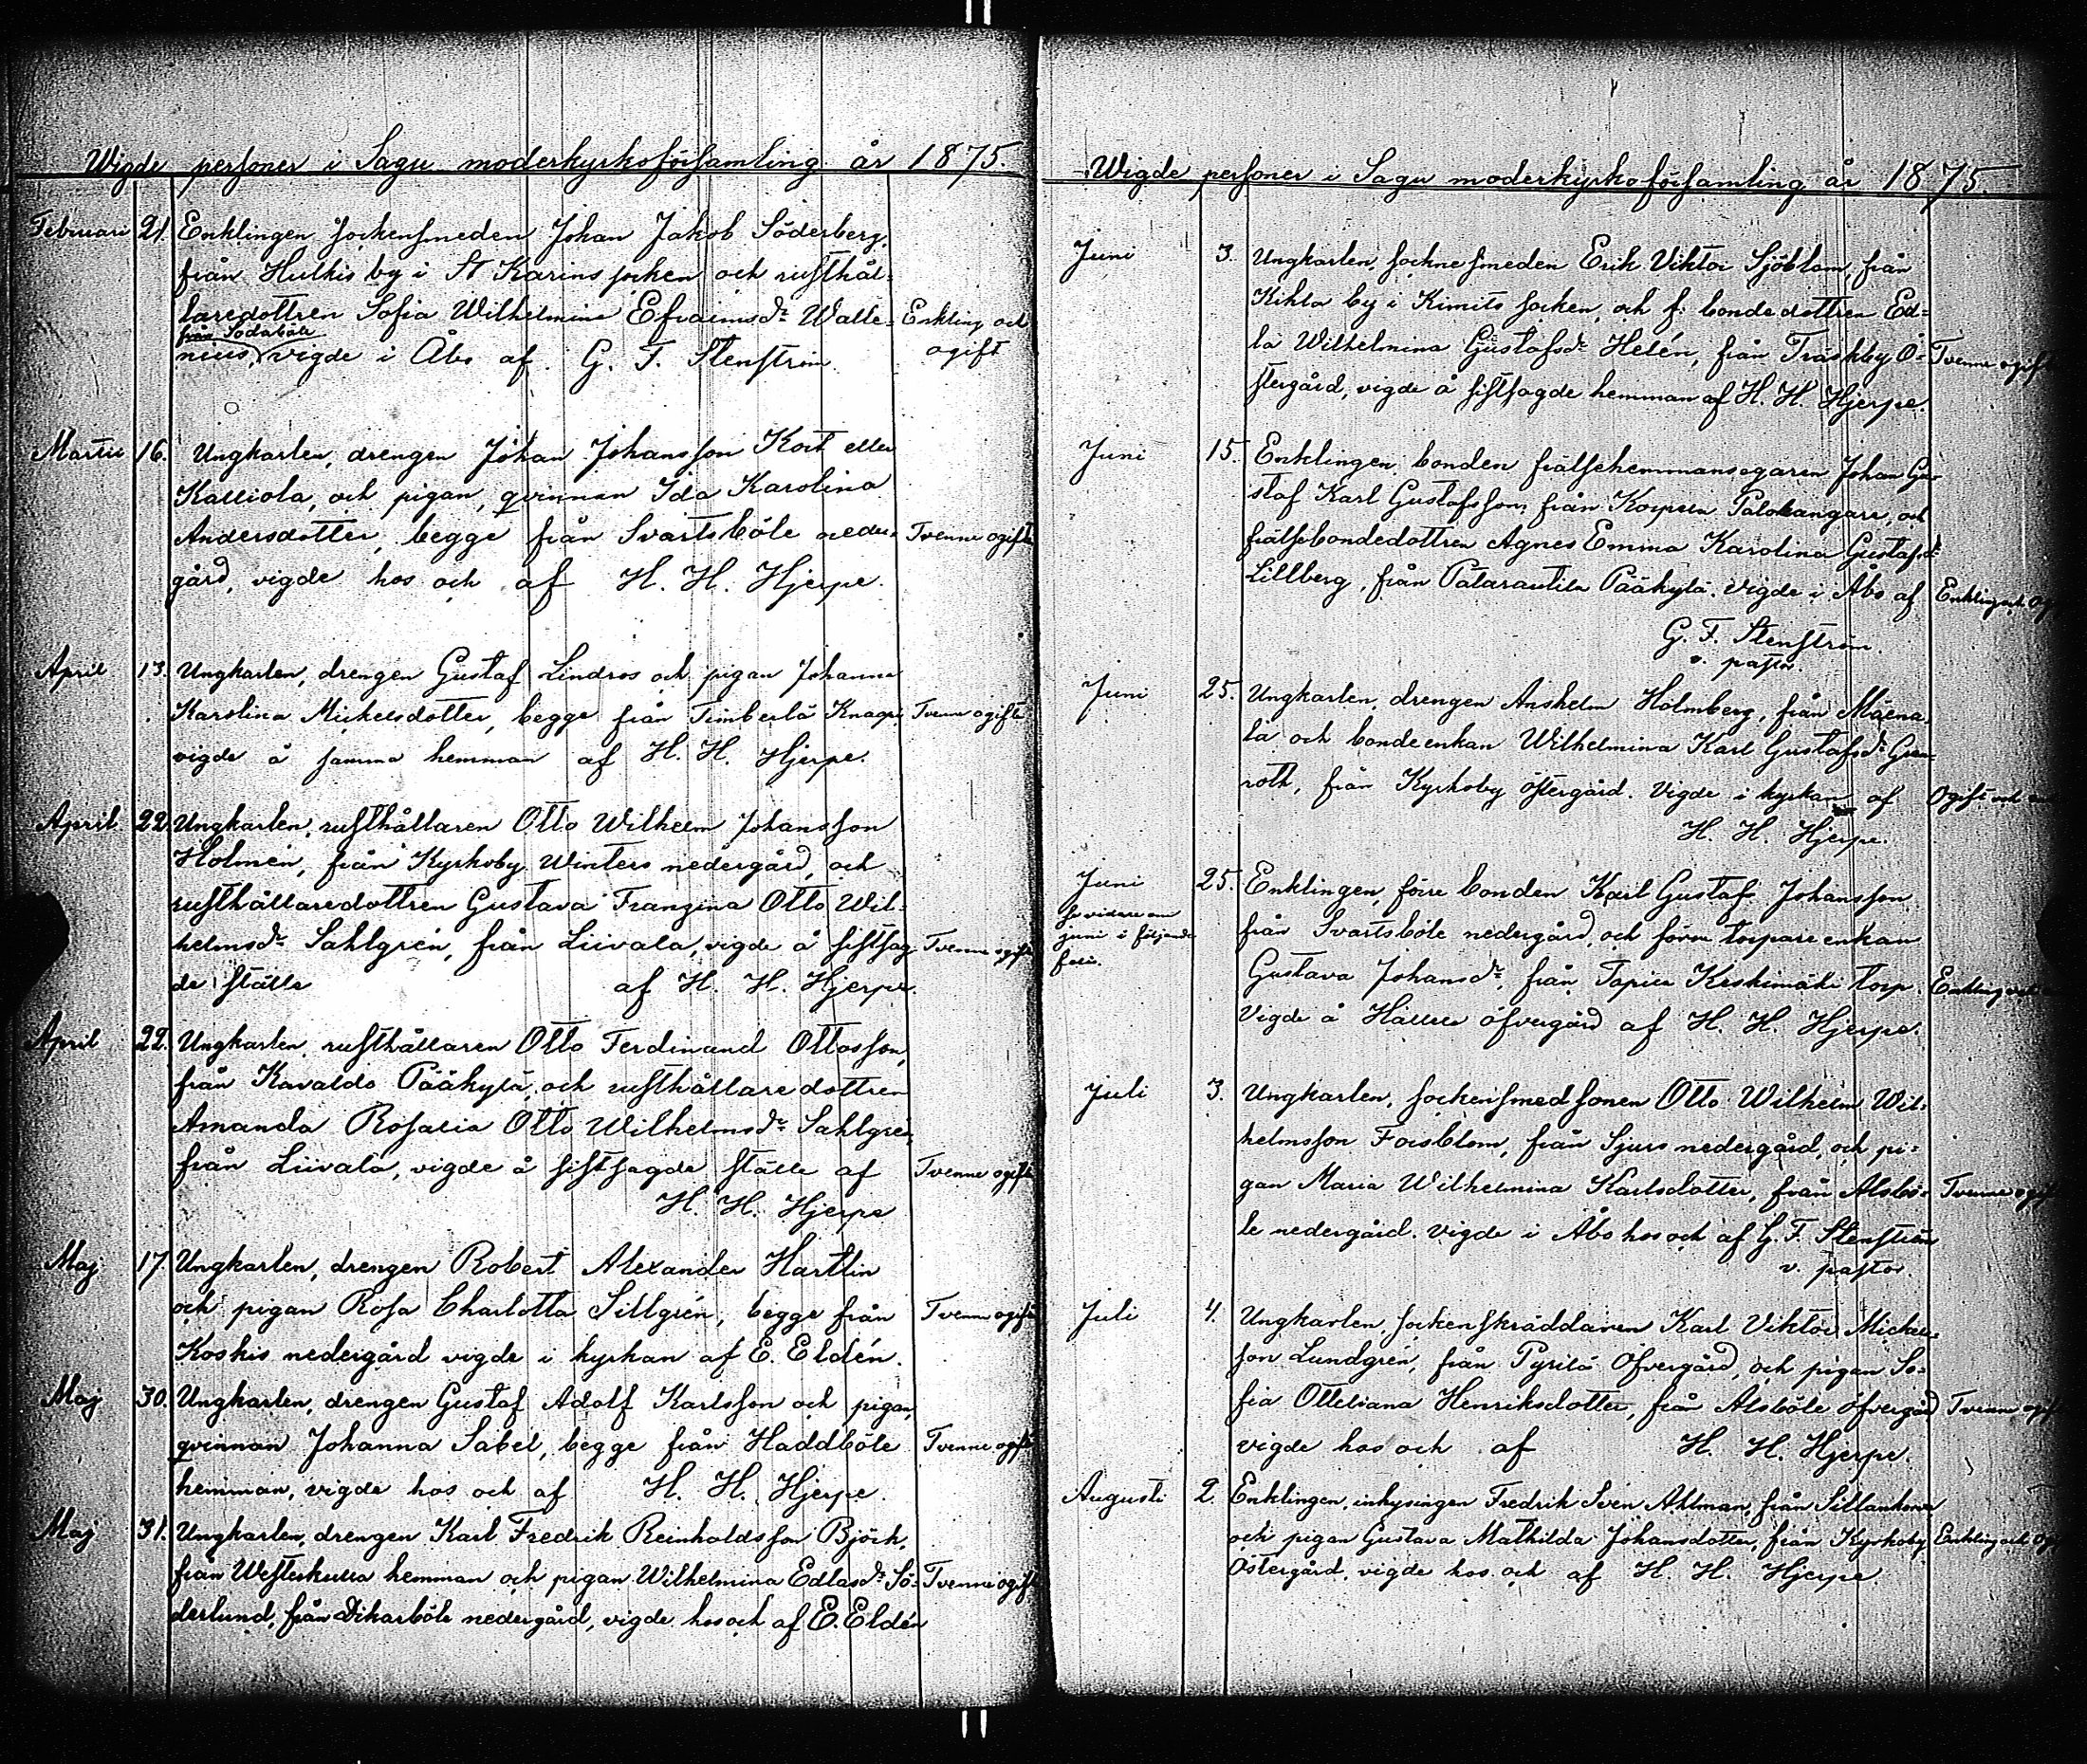 Wigde personer i Sagu moderkyrkoförsamling år 1875.
Februari 21. Enklingen sockensmeden Johan Jakob Söderberg,
från Hulkis by i St Karins socken och rusthål-
laredottren Sofia Wilhelmina Efraimsdr Walle- Enkling och
från Södaböle
nius, vigde i Åbo af G. F. Stenström ogift
Martii 16. Ungkarlen, drengen Johan Johansson Kort eller
Kalliola, och pigan, qvinnan Ida Karolina
Andersdotter, begge från Svartsböle neder- Tvenne ogifte
gård, vigde hos och af H. H. Hjerpe.
April 13. Ungkarlen, drengen Gustaf Lindros och pigan Johanna
Karolina Mickelsdotter, begge från Timberlä Knapi Tvenne ogifte
vigde å samma hemman af H. H. Hjerpe.
April 22. Ungkarlen, rusthållaren Otto Wilhelm Johansson
Holmén, från Kyrkoby Winters nedergård, och
rusthållaredottren Gustava Franzina Otto Wil-
helmsdr Sahlgrén, från Liivala, vigde å sistsag- Tvenne ogifte
de ställe af H. H. Hjerpe.
April 22. Ungkarlen, rusthållaren Otto Ferdinand Ottosson,
från Kavaldo Pääkylä, och rusthållaredottren
Amanda Rosalia Otto Wilhelmsdr Sahlgrén,
från Liivala, vigde å sistsagde ställe af Tvenne ogifte
H. H. Hjerpe
Maj 17. Ungkarlen, drengen Robert Alexander Hartlin
och pigan Rosa Charlotta Sillgrén, begge från Tvenne ogifte
Koskis nedergård vigde i kyrkan af E. Eldén.
Maj 30. Ungkarlen, drengen Gustaf Adolf Karlsson och pigan,
qvinnan Johanna Sabel, begge från Haddböle Tvenne ogifte
hemman, vigde hos och af H. H. Hjerpe.
Maj 31. Ungkarlen, drengen Karl Fredrik Reinholdsson Björk,
från Westerkulla hemman och pigan Wilhelmina Edlasdr Sö- Tvenne ogifte
derlund, från Dikarböle nedergård, vigde hos och af E. Eldén
Wigde personer i Sagu moderkyrkoförsamling år 1875.
Juni 3. Ungkarlen, socknesmeden Erik Viktor Sjöblom, från
Kihla by i Kimito socken, och f. bondedottren Ed-
la Wilhelmina Gustafsdr Helén, från Träskby Ö- Tvenne ogift
stergård, vigde å sistsagde hemman af H. H. Hjerpe.
Juni 15. Enklingen, bonden frälsehemmansegaren Johan Gu-
staf Karl Gustafsson, från Korpela Palokangare, och
frälsebondedottren Agnes Emma Karolina Gustafsdr
Lillberg, från Patarautila Pääkylä. Vigde i Åbo af Enkling och Og
G. F. Stenström.
v. pastor.
Juni 25. Ungkarlen, drengen Anshelm Holmberg, från Mäena-
la och bondeenkan Wilhelmina Karl Gustafsdr Gran-
roth, från Kyrkoby östergård. Vigde i kyrkan af Ogift och
H. H. Hjerpe.
Juni 25. Enklingen, förre bonden Karl Gustaf Johansson
se vidare om
juni i följande
folio.
från Svartsböle nedergård, och förra torpareenkan
Gustava Johansdr, från Tapila Keskimäki torp. Enkling och
Vigde å Hällele öfvergård af H. H. Hjerpe.
Juli 3. Ungkarlen, sockensmedsonen Otto Wilhelm Wil-
helmsson Forsblom, från Sjurs nedergård, och pi-
gan Maria Wilhelmina Karlsdotter, från Alsbö- Tvenne ogif
le nedergård. Vigde i Åbo hos och af G. F. Stenström
v. pastor.
Juli 4. Ungkarlen, sockenskräddaren Karl Viktor Mickels-
son Lundgrén, från Pyrilä Öfvergård, och pigan So-
fia Otteliana Henriksdotter, från Alsböle öfvergård Tvenne ogif
vigde hos och af H. H. Hjerpe.
Augusti 2. Enklingen, inhysingen Fredrik Sven Ahlman, från Sillankorva
och pigan Gustava Mathilda Johansdotter, från Kyrkoby Enkling och Og
Östergård, vigde hos och af H. H. Hjerpe